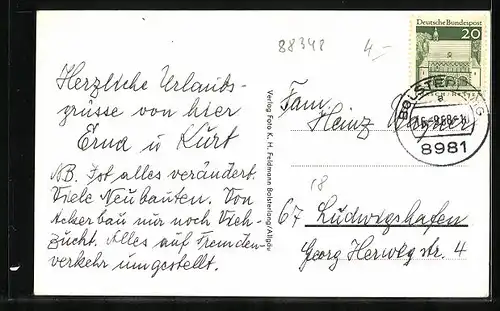 88348
4.-
Deutsche Bundespost
20
BOLSTERLANG
15.-9.68
8981
Herzliche Urlaubs-
grüsse von hier
Erna u Kurt
NB. Ist alles verändert.
Viele Neubauten. Von
Ackerbau nur noch Vieh-
zucht. Alles auf Fremden-
verkehr umgestellt.
Verlag Foto K. H. Feldmann Bolsterlang/Allgäu
Fam.
Heinz
18
67 Ludwigshafen
Georg Herwegstr. 4